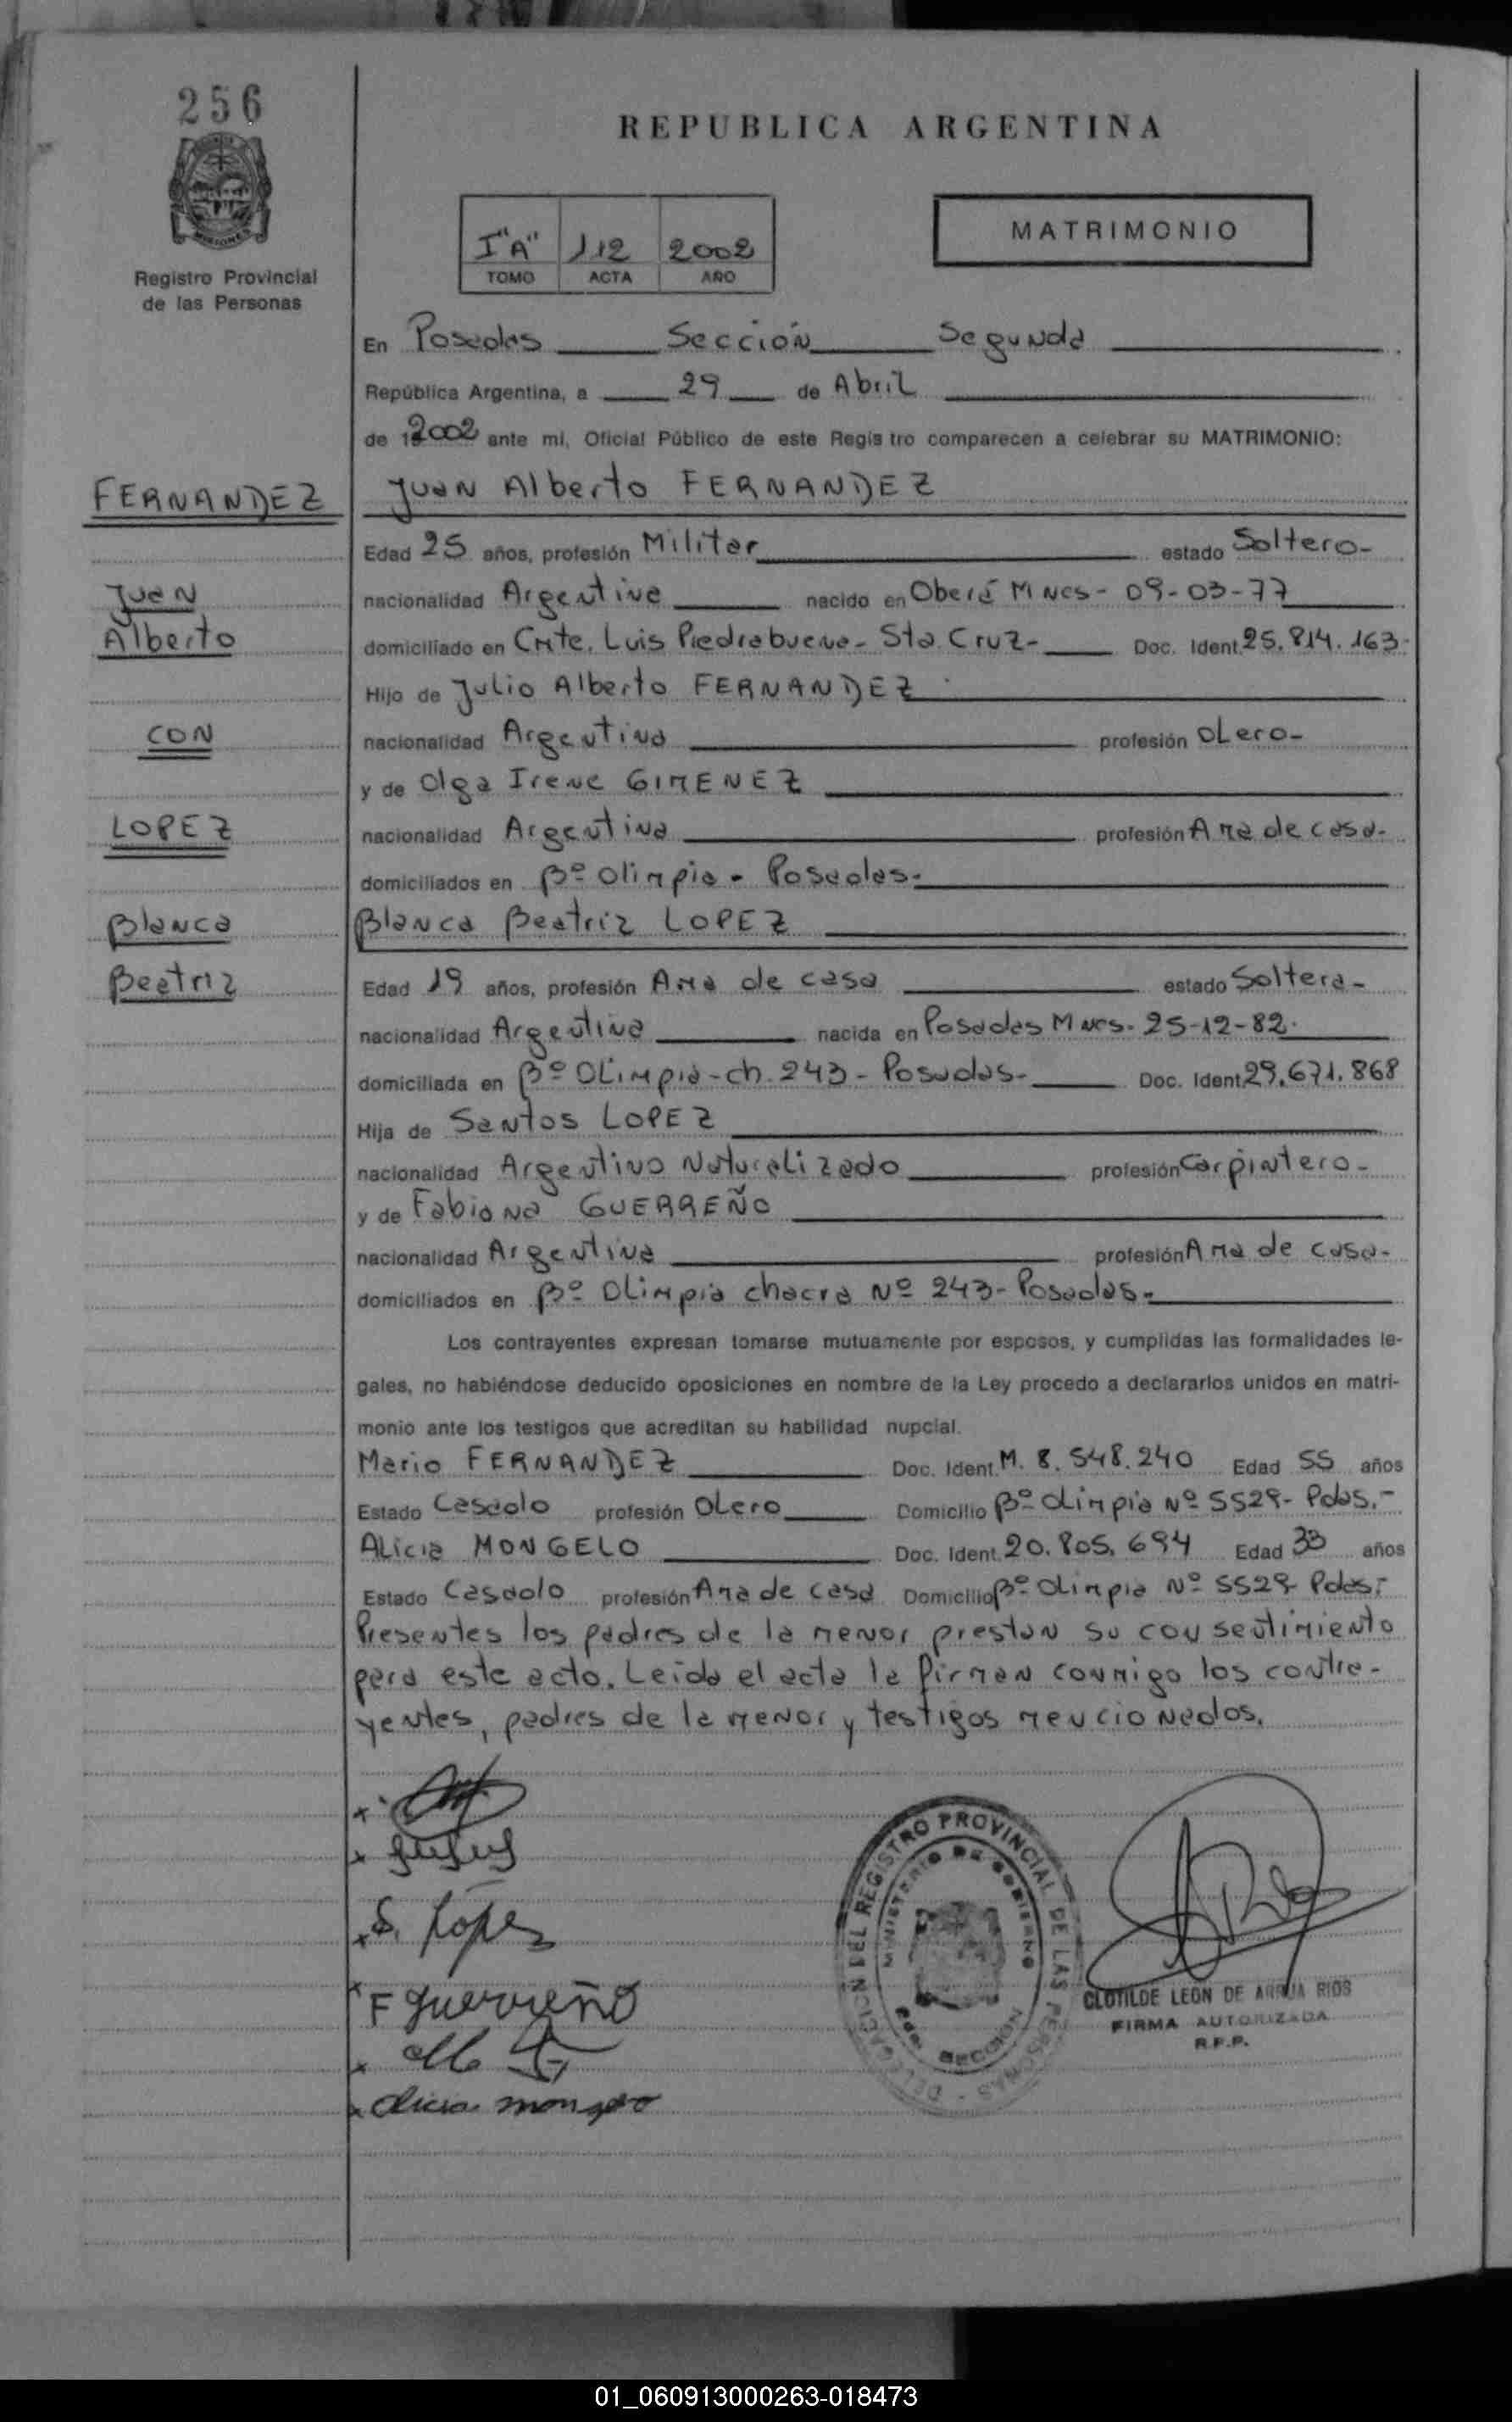 256
REPUBLICA ARGENTINA
MISIONES
Registro Provincial
de las Personas
I"A" 112 2002
TOMO ACTA AÑO
MATRIMONIO
En Posadas Sección Segunda
República Argentina, a 29 de Abril
de 2002 ante mi, Oficial Público de este Registro comparecen a celebrar su MATRIMONIO:
FERNANDEZ
Juan Alberto FERNANDEZ
Edad 25 años, profesión Militar estado Soltero-
Juan
nacionalidad Argentina nacido en Oberá Mnes- 09-03-77
Alberto
domiciliado en Cmte. Luis Piedrabuena- Sta. Cruz- Doc. Ident. 25.814.163-
Hijo de Julio Alberto FERNANDEZ
CON
nacionalidad Argentina profesión Olero-
y de Olga Irene GIMENEZ
LOPEZ
nacionalidad Argentina profesión Ama de casa-
domiciliados en Bº Olimpia - Posadas-
Blanca
Blanca Beatriz LOPEZ
Beatriz
Edad 19 años, profesión Ama de casa estado Soltera-
nacionalidad Argentina nacida en Posadas Mnes- 25-12-82-
domiciliada en Bº Olimpia-ch. 243- Posadas- Doc. Ident. 29.671.868
Hija de Santos LOPEZ
nacionalidad Argentino Naturalizado profesión Carpintero-
y de Fabiana GUERREÑO
nacionalidad Argentina profesión Ama de casa-
domiciliados en Bº Olimpia chacra Nº 243- Posadas-
Los contrayentes expresan tomarse mutuamente por esposos, y cumplidas las formalidades le-
gales, no habiéndose deducido oposiciones en nombre de la Ley procedo a declararlos unidos en matri-
monio ante los testigos que acreditan su habilidad nupcial.
Mario FERNANDEZ Doc. Ident. M. 8.548.240 Edad 55 años
Estado Casado profesión Olero Domicilio Bº Olimpia Nº 5529- Pdas.-
Alicia MONGELO Doc. Ident. 20.805.694 Edad 33 años
Estado Casado profesión Ama de casa Domicilio Bº Olimpia Nº 5529- Pdas.-
Presentes los padres de la menor prestan su consentimiento
para este acto. Leida el acta la firman conmigo los contra-
yentes, padres de la menor y testigos mencionados.
S. López
F Guerreño
Alicia mongelo
DELEGACION DEL REGISTRO PROVINCIAL DE LAS PERSONAS
MINISTERIO DE GOBIERNO
2da. SECCION
CLOTILDE LEON DE ARRUA RIOS
FIRMA AUTORIZADA
R.P.P.
01_060913000263-018473